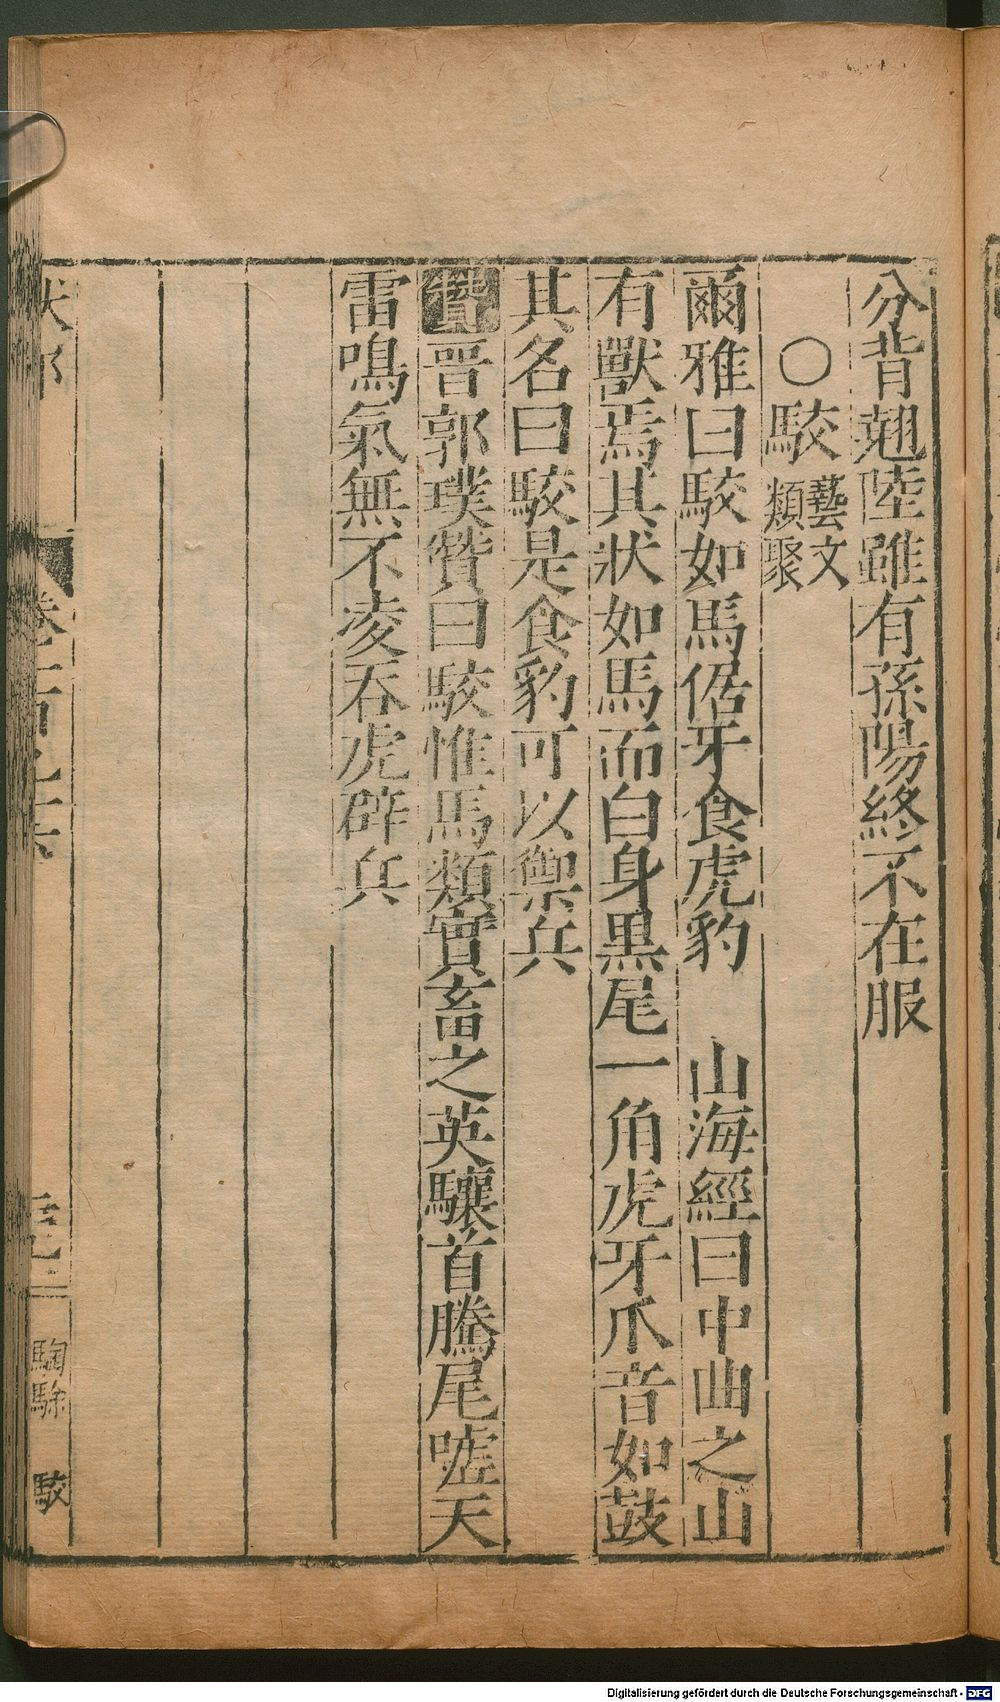 分背翹陸雖有孫陽終不在服
○駮 藝文類聚
爾雅曰駮如馬倨牙食虎豹　山海經曰中曲之山
有獸焉其狀如馬而白身黒尾一角虎牙爪音如鼓
其名曰駮是食豹可以禦兵
贊晋郭璞贊曰駮惟馬類實畜之英驤首騰尾嘘天
雷鳴氣無不凌吞虎辟兵
騊駼　駮
Digitalisierung gefördert durch die Deutsche Forschungsgemeinschaft - DFG